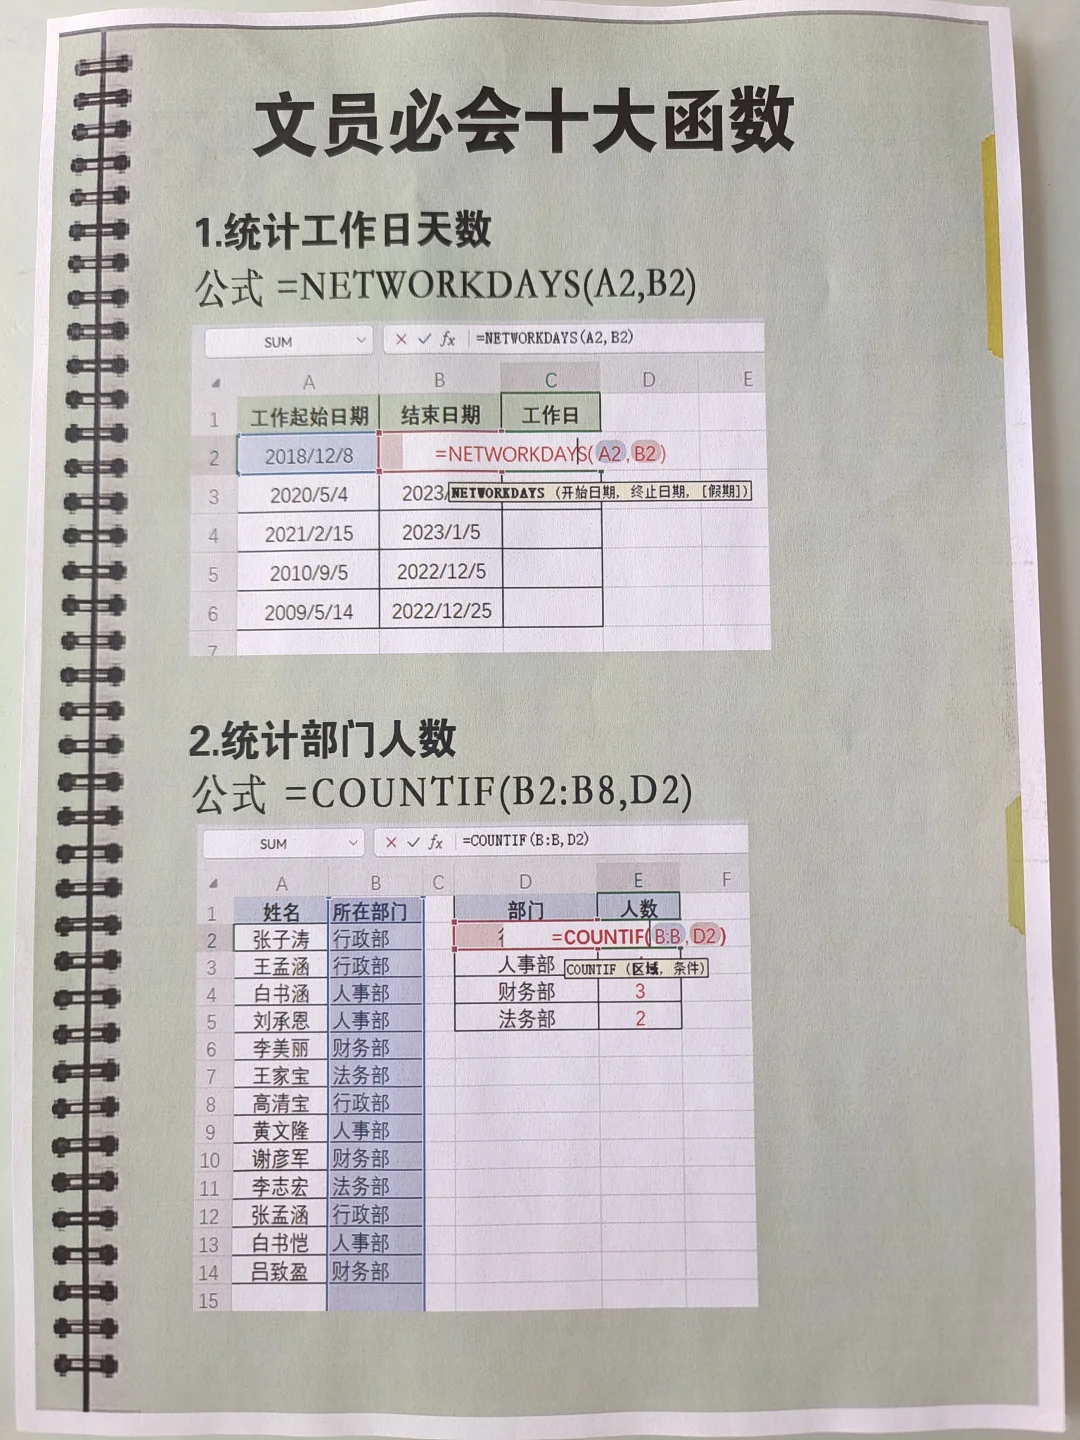 文员必会十大函数
1.统计工作日天数
公式 =NETWORKDAYS(A2,B2)
SUM =NETWORKDAYS(A2,B2)
A B C D E
1 工作起始日期 结束日期 工作日
2 2018/12/8 =NETWORKDAYS(A2,B2)
3 2020/5/4 2023/ NETWORKDAYS (开始日期, 终止日期, [假期])
4 2021/2/15 2023/1/5
5 2010/9/5 2022/12/5
6 2009/5/14 2022/12/25
7
2.统计部门人数
公式 =COUNTIF(B2:B8,D2)
SUM =COUNTIF(B:B,D2)
A B C D E F
1 姓名 所在部门 部门 人数
2 张子涛 行政部 =COUNTIF(B:B,D2)
3 王孟涵 行政部 人事部 COUNTIF (区域, 条件)
4 白书涵 人事部 财务部 3
5 刘承恩 人事部 法务部 2
6 李美丽 财务部
7 王家宝 法务部
8 高清宝 行政部
9 黄文隆 人事部
10 谢彦军 财务部
11 李志宏 法务部
12 张孟涵 行政部
13 白书恺 人事部
14 吕致盈 财务部
15